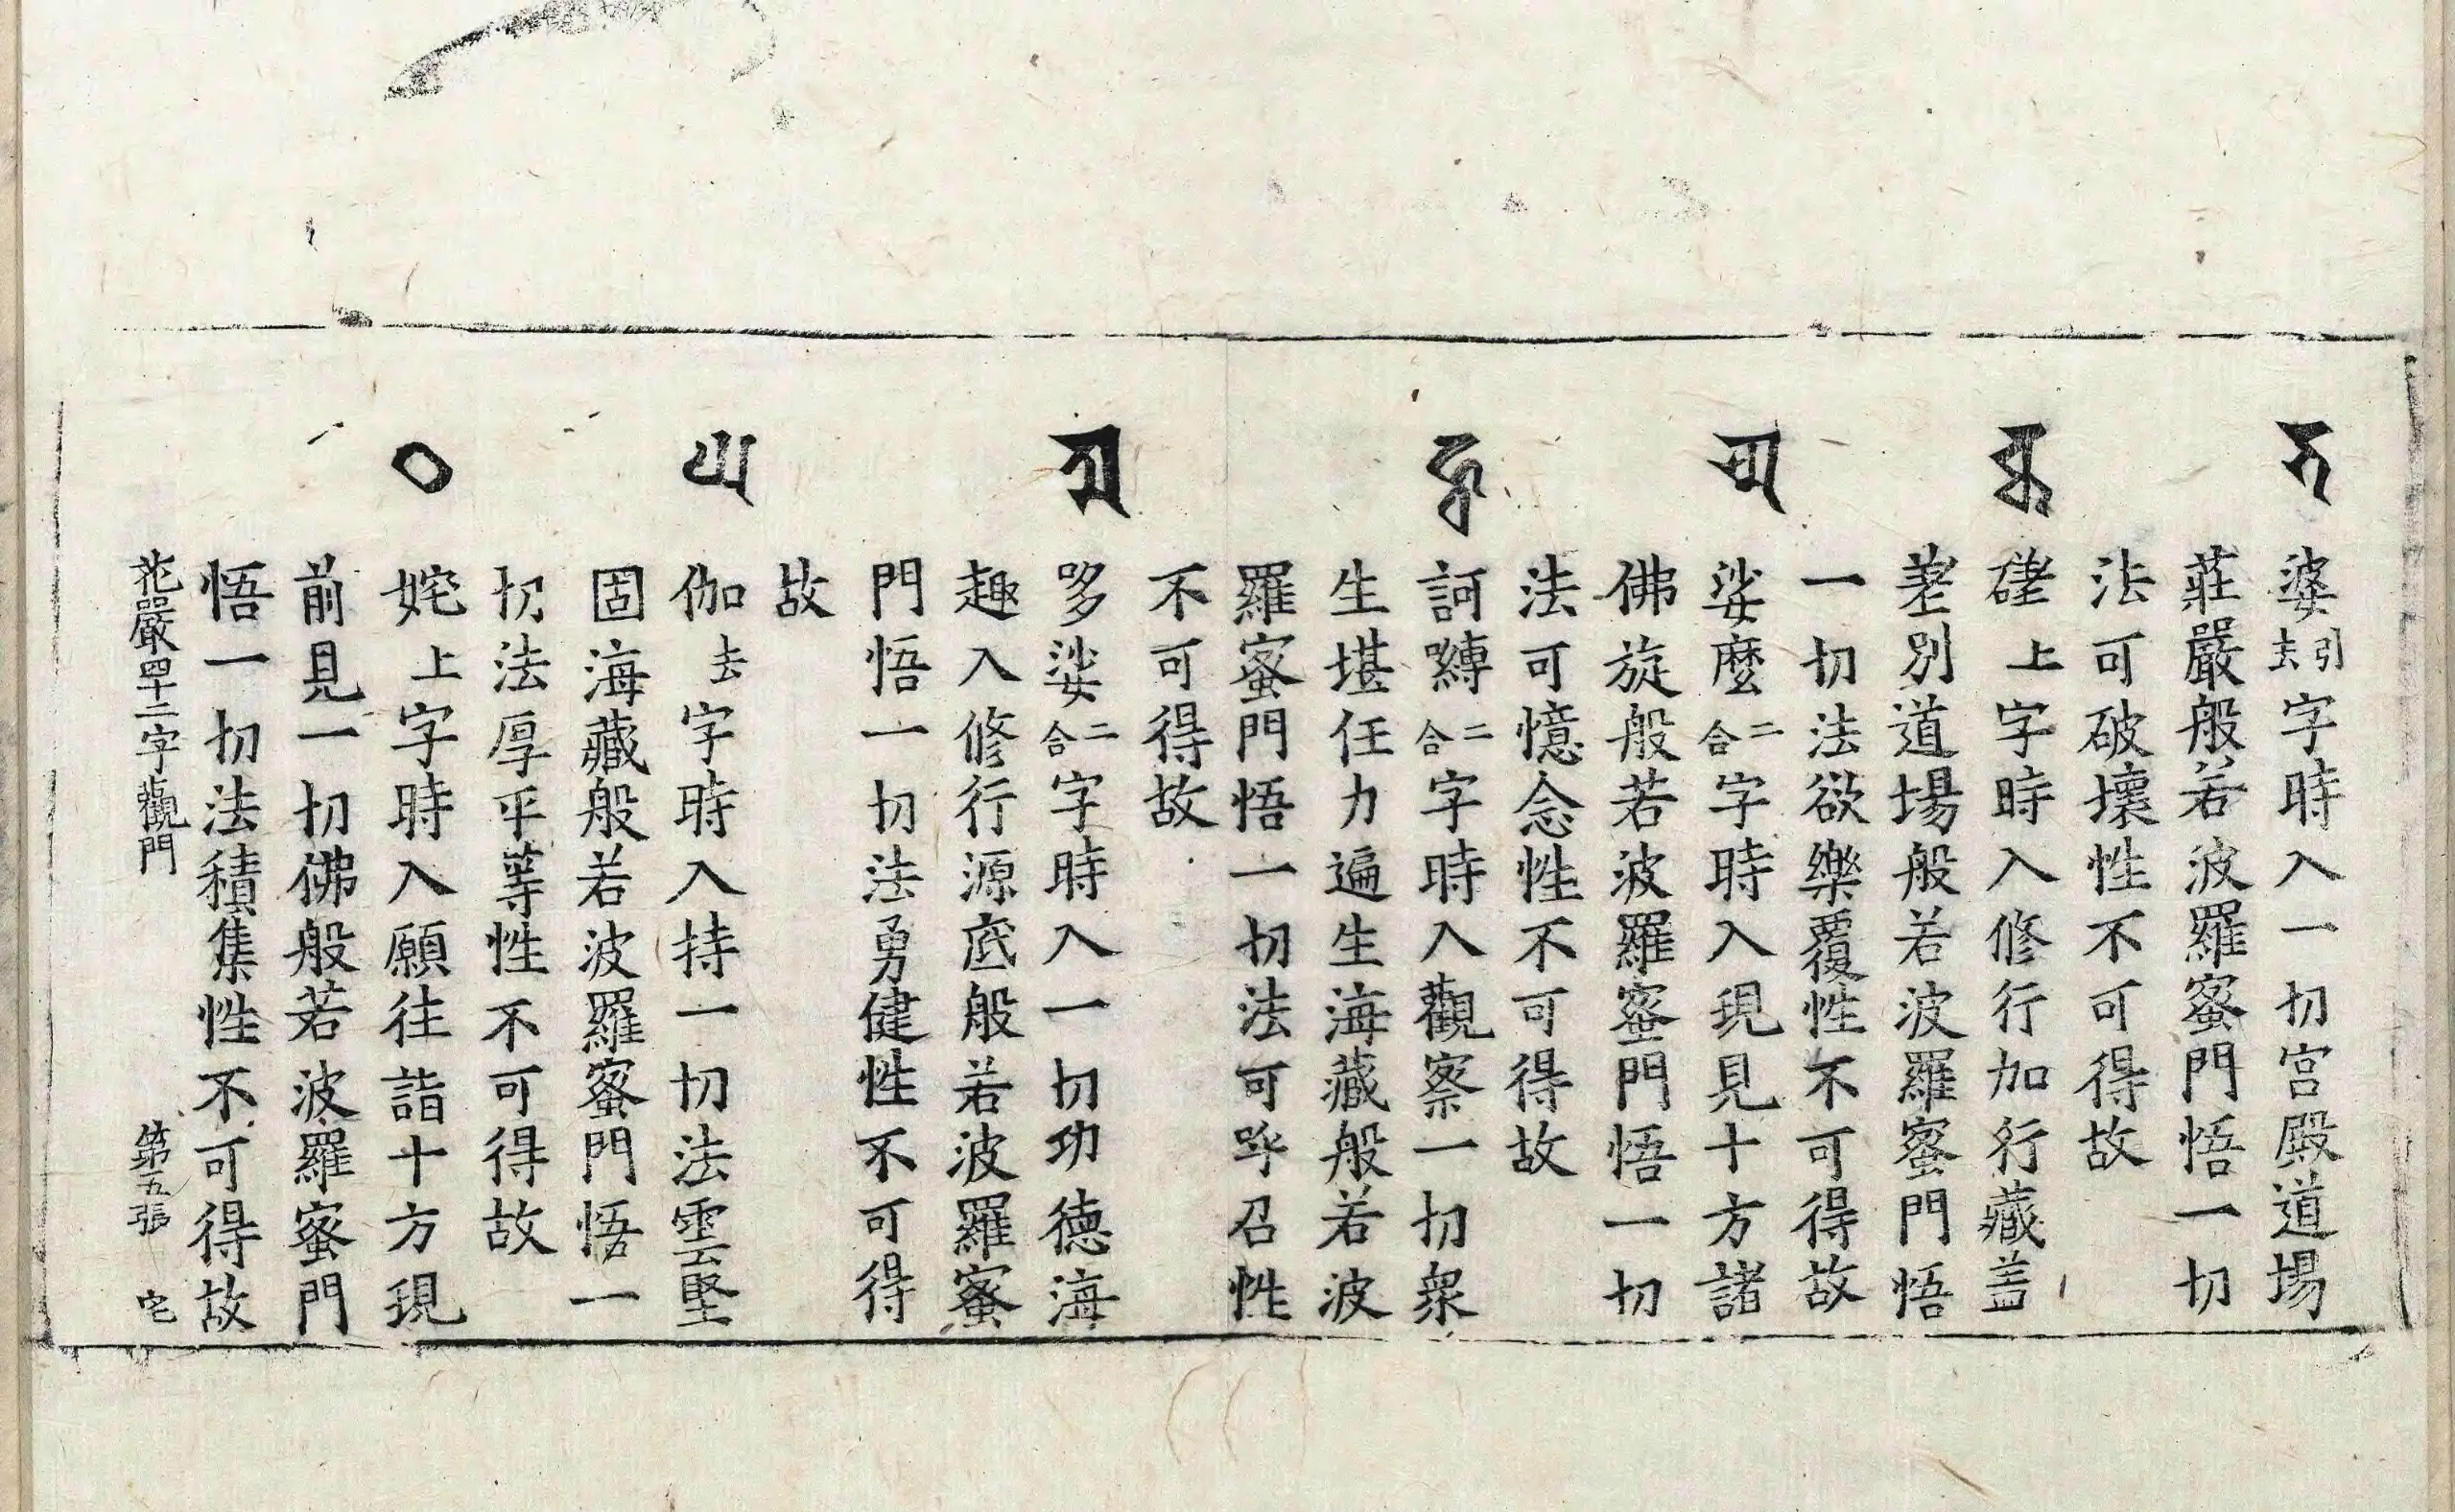 𑖥 婆引去字時入一切宮殿道場
莊嚴般若波羅蜜門悟一切
法可破壞性不可得故
𑖔 磋上字時入修行加行藏盖
差別道場般若波羅蜜門悟
一切法欲樂覆性不可得故
𑖭𑖿𑖦 娑麼二合字時入現見十方諸
佛旋般若波羅蜜門悟一切
法可憶念性不可得故
𑖮𑖿𑖪 訶嚩二合字時入觀察一切衆
生堪任力遍生海藏般若波
羅蜜門悟一切法可呼召性
不可得故
𑖝𑖿𑖭 哆娑二合字時入一切功德海
趣入修行源底般若波羅蜜
門悟一切法勇健性不可得
故
𑖑 伽去字時入持一切法雲堅
固海藏般若波羅蜜門悟一
切法厚平等性不可得故
𑖙 姹上字時入願往詣十方現
前見一切佛般若波羅蜜門
悟一切法積集性不可得故
花嚴四十二字觀門 第五張 宅